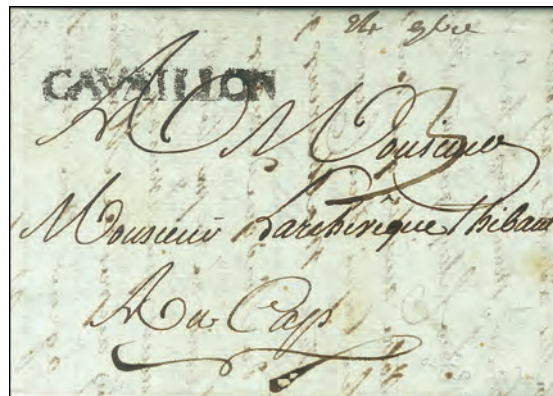 24 9bre
CAVAILLON
A Monsieur
Monsieur Larchevêque Thibaud
Au Cap